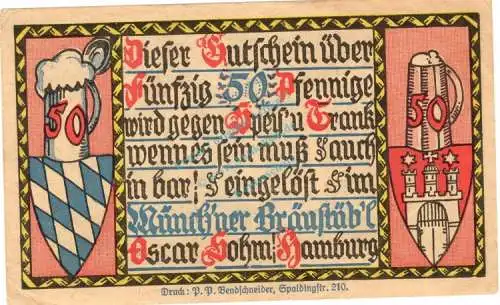 Dieser Gutschein über
Fünfzig 50 Pfennige
wird gegen Speis u Trank
wenn es sein muß auch
in bar! eingelöst im
Münch'ner Bräustüb'l
Oscar Dohm, Hamburg
50
50
Druck: P. P. Bendschneider, Spaldingstr. 210.